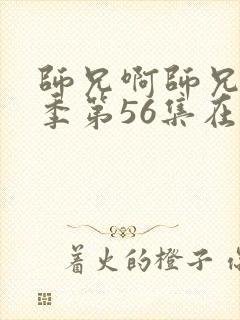 師兄啊師兄
季第56集在
著火的橙子